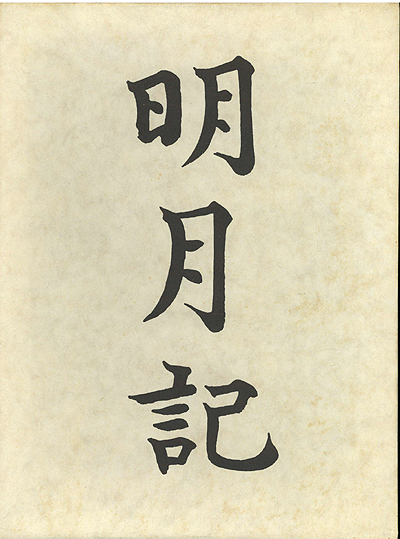 明月記